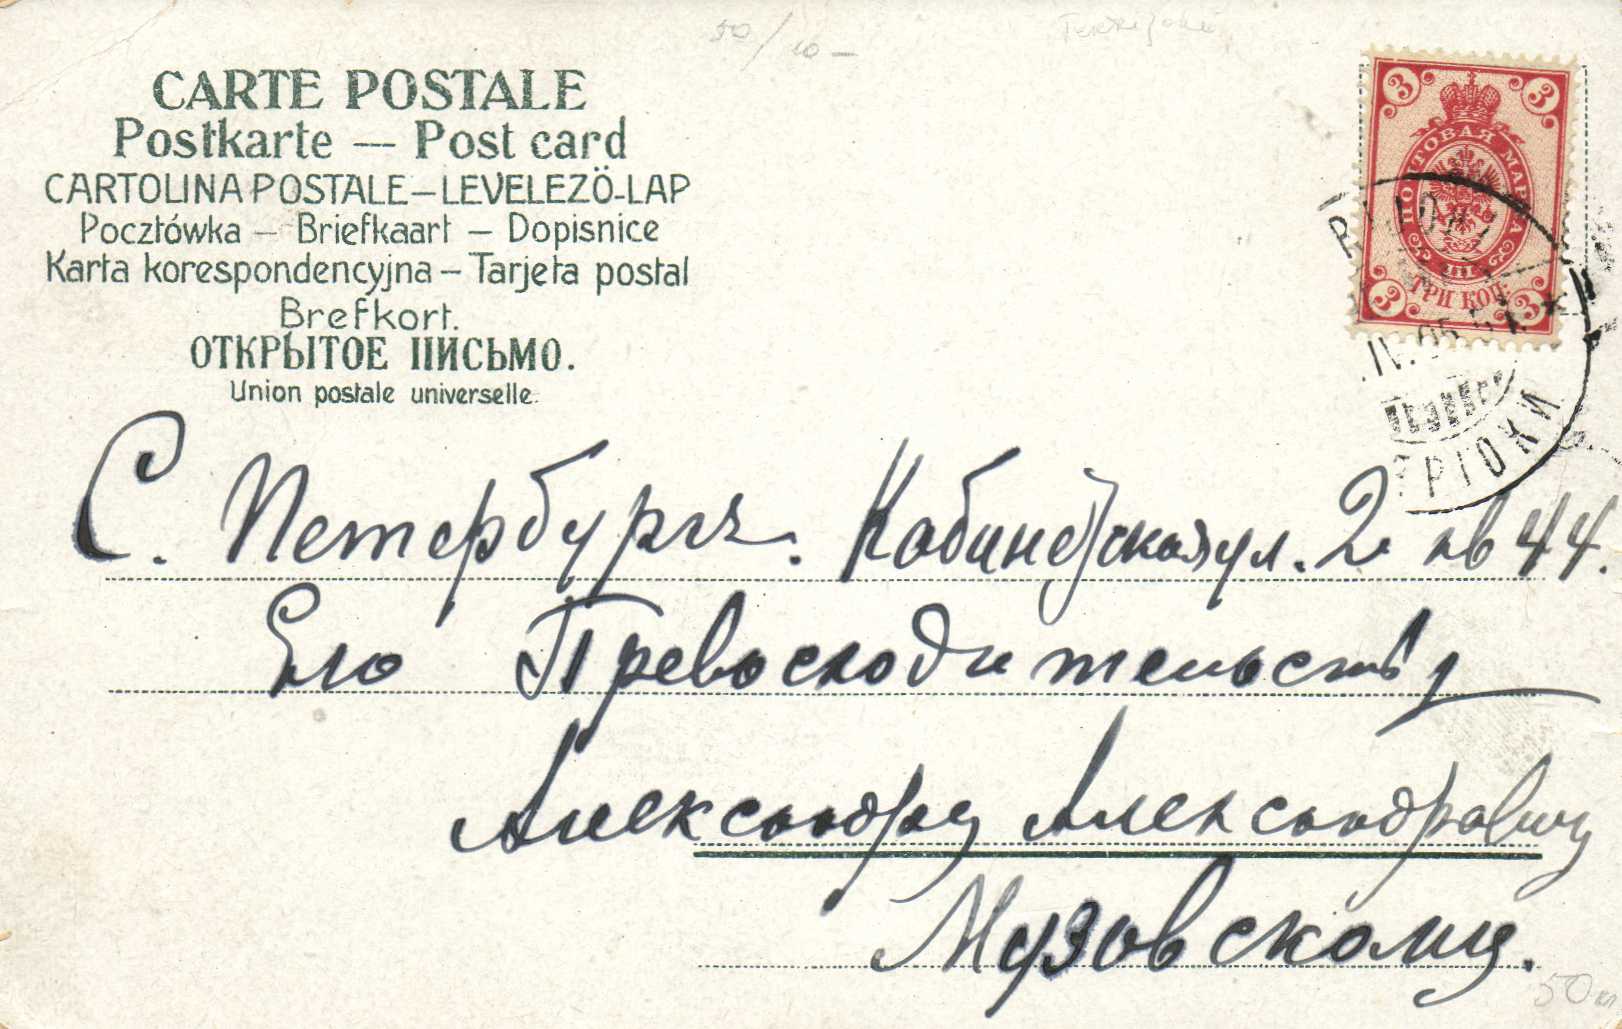 50/10 –
CARTE POSTALE
Postkarte — Post card
CARTOLINA POSTALE – LEVELEZÖ-LAP
Pocztówka – Briefkaart – Dopisnice
Karta korespondencyjna – Tarjeta postal
Brefkort.
ОТКРЫТОЕ ПИСЬМО.
Union postale universelle.
3 3
ПОЧТОВАЯ МАРКА
ТРИ КОП.
3 3
.IV.05
С. Петербургъ. Кабинетская ул. 2 кв 44.
Его Превосходительству
Александру Александровичу
Музовскому.
50